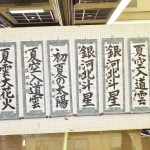 夏雲大花火
夏空入道雲
初夏の太陽
銀河北斗星
銀河北斗星
夏空入道雲